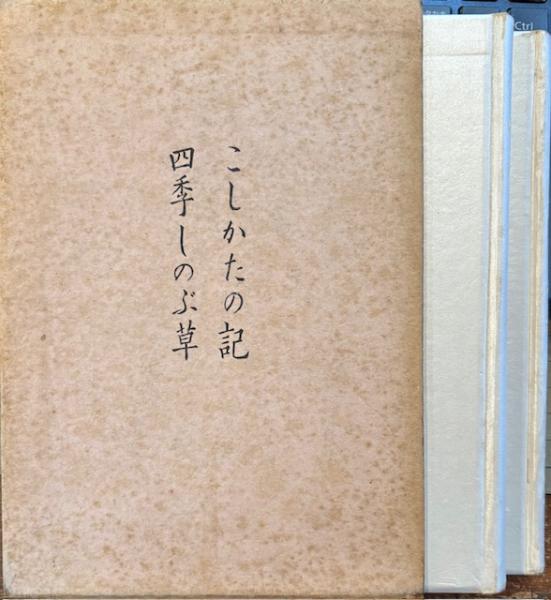 こしかたの記
四季しのぶ草
Ctrl